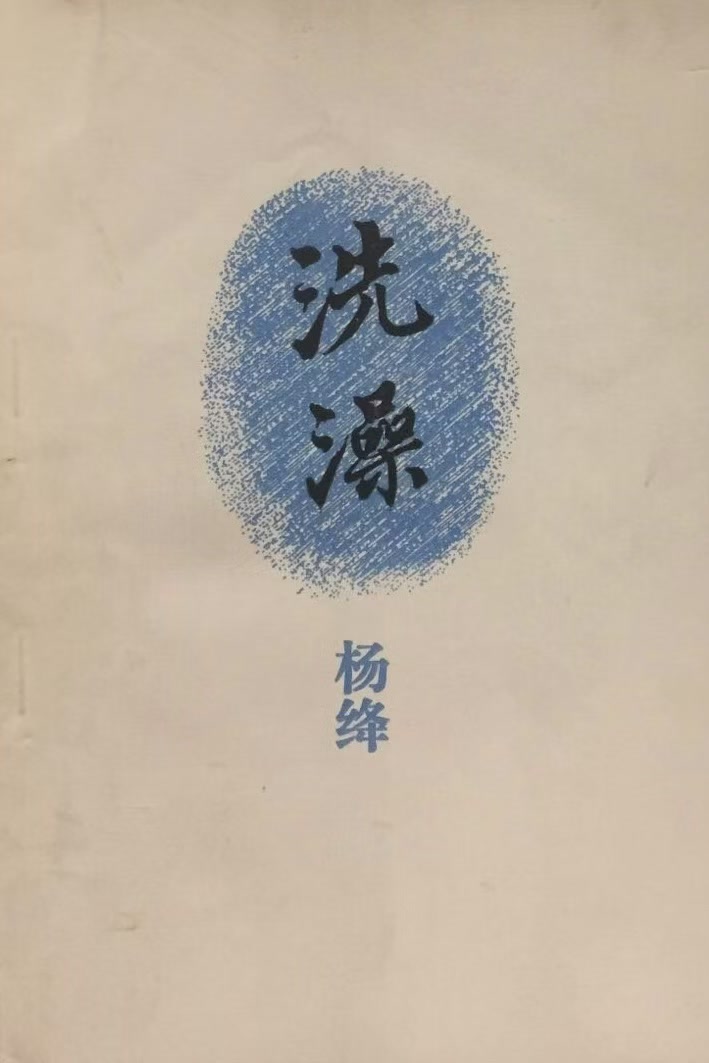 洗澡
杨绛